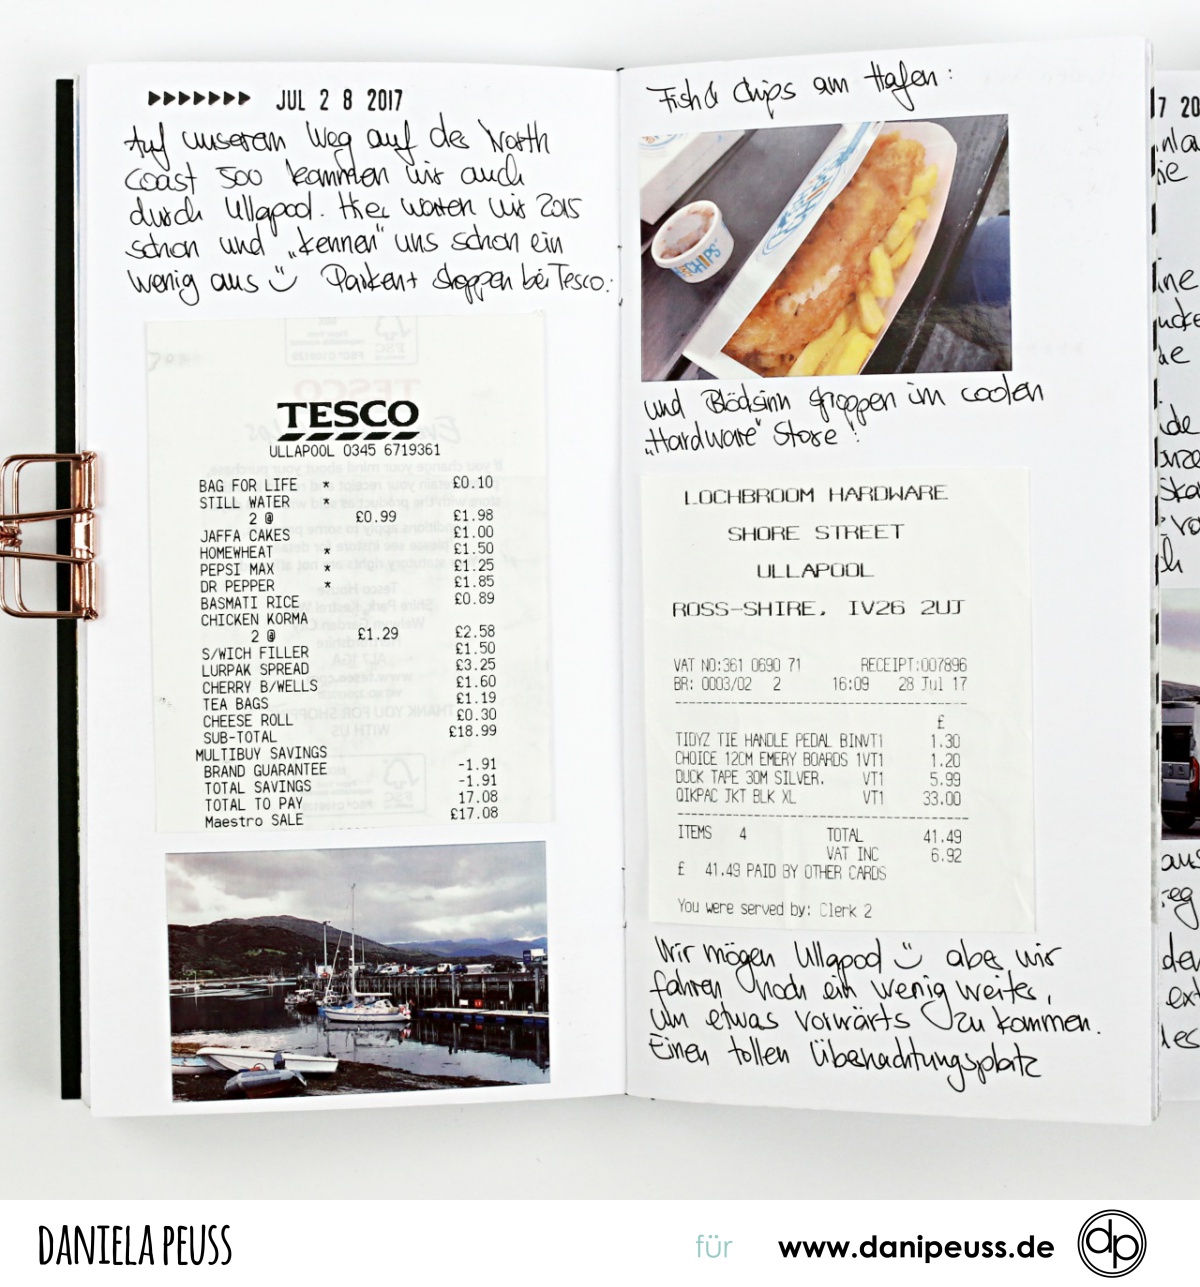 JUL 2 8 2017
Auf unserem Weg auf der North
Coast 500 kommen wir auch
durch Ullapool. Hier waren wir 2015
schon und „kennen“ uns schon ein
wenig aus Parken + shoppen bei Tesco:
TESCO
ULLAPOOL 0345 6719361
BAG FOR LIFE * £0.10
STILL WATER *
2 @ £0.99 £1.98
JAFFA CAKES £1.00
HOMEWHEAT * £1.50
PEPSI MAX * £1.25
DR PEPPER * £1.85
BASMATI RICE £0.89
CHICKEN KORMA
2 @ £1.29 £2.58
S/WICH FILLER £1.50
LURPAK SPREAD £3.25
CHERRY B/WELLS £1.60
TEA BAGS £1.19
CHEESE ROLL £0.30
SUB-TOTAL £18.99
MULTIBUY SAVINGS
BRAND GUARANTEE -1.91
TOTAL SAVINGS -1.91
TOTAL TO PAY 17.08
Maestro SALE £17.08
Fish & Chips am Hafen:
CHIPS
und Blödsinn shoppen im coolen
„Hardware“ Store!
LOCHBROOM HARDWARE
SHORE STREET
ULLAPOOL
ROSS-SHIRE, IV26 2UJ
VAT NO:361 0690 71 RECEIPT:007896
BR: 0003/02 2 16:09 28 Jul 17
£
TIDYZ TIE HANDLE PEDAL BINVT1 1.30
CHOICE 12CM EMERY BOARDS 1VT1 1.20
DUCK TAPE 30M SILVER. VT1 5.99
QIKPAC JKT BLK XL VT1 33.00
ITEMS 4 TOTAL 41.49
VAT INC 6.92
£ 41.49 PAID BY OTHER CARDS
You were served by: Clerk 2
Wir mögen Ullapool aber wir
fahren noch ein wenig weiter,
um etwas vorwärts zu kommen.
Einen tollen Übernachtungsplatz
DANIELA PEUSS
für www.danipeuss.de
dp